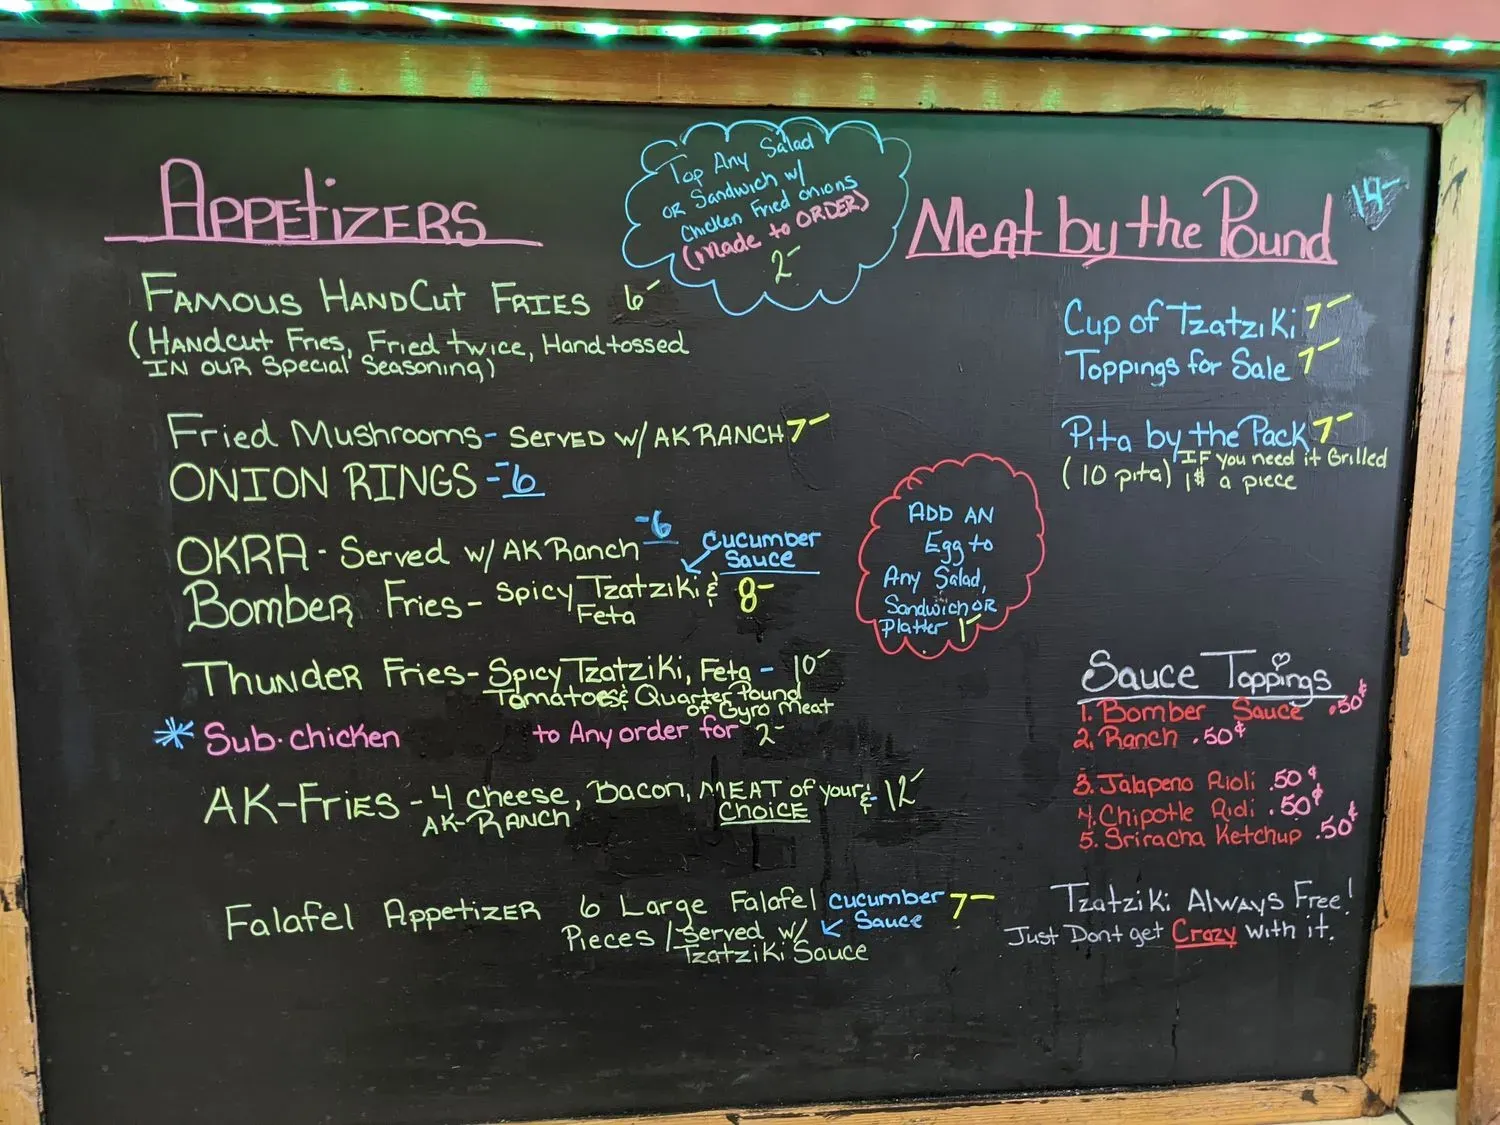 APPETIZERS
FAMOUS HANDCUT FRIES 6-
(HANDCUT FRIES, FRIED twice, Hand tossed
IN OUR Special Seasoning)
Fried Mushrooms- SERVED W/ AK RANCH 7-
ONION RINGS -6
OKRA - Served w/ AK Ranch -6
Cucumber
Sauce
Bomber Fries- Spicy Tzatziki & 8-
Feta
Thunder Fries- Spicy Tzatziki, Feta - 10-
Tomatoes & Quarter Pound
of Gyro Meat
* Sub-chicken to Any order for 2-
AK-FRIES - 4 cheese, Bacon, MEAT of your & - 12-
AK-RANCH CHOICE
Falafel Appetizer 6 Large Falafel Cucumber 7-
Pieces / Served w/ Sauce
Tzatziki Sauce
Top Any Salad
OR Sandwich w/
Chicken Fried onions
(Made to ORDER)
2-
ADD AN
Egg to
Any Salad,
Sandwich OR
Platter 1-
Meat by the Pound 14-
Cup of Tzatziki 7-
Toppings for Sale 7-
Pita by the Pack 7-
(10 pita) IF you need it Grilled
1$ a piece
Sauce Toppings
1. Bomber Sauce .50¢
2. Ranch .50¢
3. Jalapeno Rioli .50¢
4. Chipotle Rioli .50¢
5. Sriracha Ketchup .50¢
Tzatziki Always Free!
Just Dont get Crazy with it.